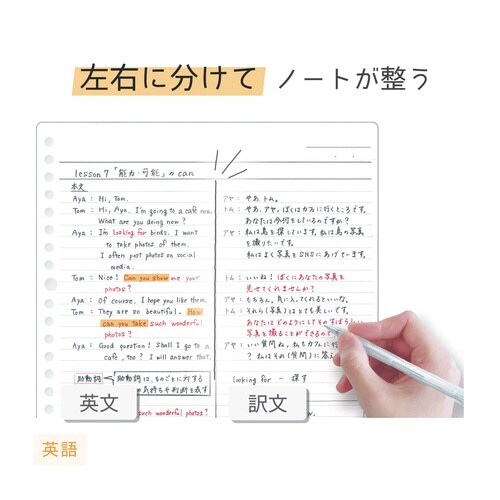 左右に分けて ノートが整う
lesson 7「能力・可能」の can
本文
Aya : Hi, Tom.
Tom : Hi, Aya. I'm going to a cafe now.
What are you doing now?
Aya : I'm looking for birds. I want
to take photos of them.
I often post photos on social
media.
Tom : Nice! Can you show me your
photos?
Aya : Of course. I hope you like them.
Tom : They are so beautiful. How
can you take such wonderful
photos?
Aya : Good question! Shall I go to a
cafe, too? I will answer that.
助動詞
助動詞は、ものごとに対する
気持ちや判断を表す
such wonderful photos?
アヤ : やあ、トム。
トム : やあ、アヤ。ぼくはカフェに行くところです。
あなたは今何をしているのですか?
アヤ : 私は鳥を探しています。私は鳥の写真
を撮りたいです。
私はよく写真をSNSにあげています。
トム : いいね! ぼくにあなたの写真を
見せてくれませんか?
アヤ : もちろん。気に入ってくれるといいな。
トム : それら(写真)はとても美しいです。
あなたはどのようにしてそのすばらしい
写真を撮ることができるので
アヤ : いい質問ね。私もカフェに行
? 私はそれ(質問)に答え
looking for ー 探す
英文
訳文
英語